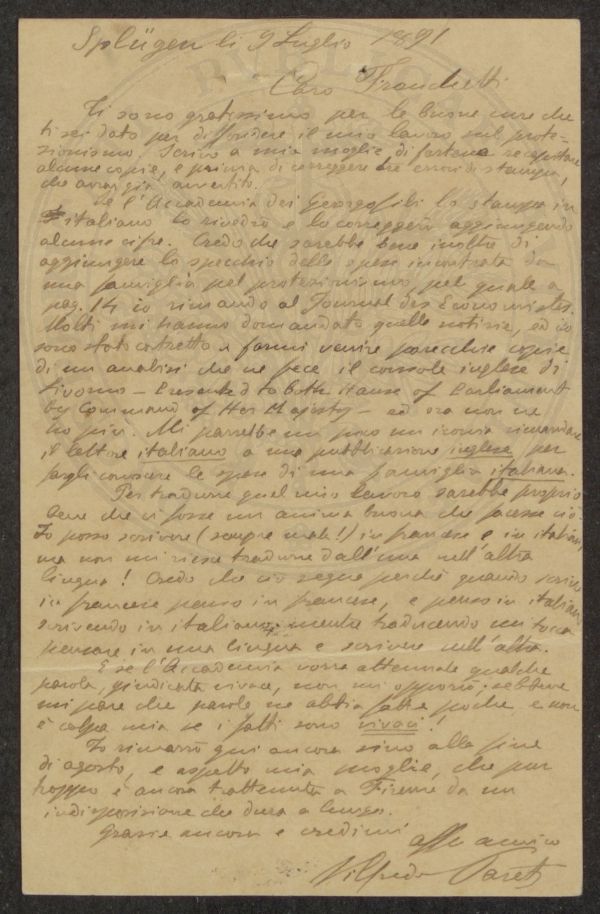 Splügen li 9 Luglio 1891
Caro Franchetti
Ti sono gratissimo per le buone cure che
ti sei dato per diffondere il mio lavoro sul prote-
zionismo. Scrivo a mia moglie di fartene recapitare
alcune copie, e prima di correggere tre errori di stampa,
che avrai già avvertito.
Se l'Accademia dei Georgofili lo stampa in
italiano lo rivedrò e lo correggerò aggiungendo
alcune cifre. Credo che sarebbe bene inoltre di
aggiungere lo specchio delle spese incontrate da
una famiglia pel protezionismo, pel quale a
pag. 14 io rimando al Journal des Economistes.
Molti mi hanno domandato quelle notizie, ed io
sono stato costretto a farmi venire parecchie copie
di un analisi che ne fece il console inglese di
Livorno – Presented to Both House of Parliament
by Command of Her Majesty – ed ora non ne
ho più. Mi parrebbe un poco un ironia rimandare
il lettore italiano a una pubblicazione inglese per
fargli conoscere le spese di una famiglia italiana.
Per tradurre quel mio lavoro sarebbe proprio
bene che ci fosse un anima buona che facesse ciò.
Io posso scrivere (sempre male!) in francese e in italiano,
ma non mi riesce tradurre dall'una nell'altra
lingua! Credo che ciò segua perchè quando scrivo
in francese penso in francese, e penso in italiano
scrivendo in italiano; mentre traducendo mi tocca
pensare in una lingua e scrivere nell'altra.
E se l'Accademia vorrà attenuare qualche
parola, giudicata vivace, non mi opporrò; sebbene
mi pare che parole ne abbia fatte poche e non
è colpa mia se i fatti sono vivaci!
Io rimarrò qui ancora sino alla fine
di agosto, e aspetto mia moglie, che pur
troppo è ancora trattenuta a Firenze da un
indisposizione che dura a lungo.
Grazie ancora e credimi
affo amico
Vilfredo Pareto